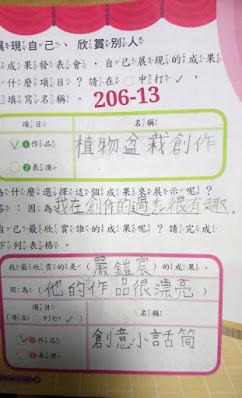 展現自己、欣賞別人
成果發表會,自己展現的成果
什麼項目?請在○中打✓,
填寫名稱。
206-13
項目 名稱
✓❶作品 植物盆栽創作
○❷表演
什麼選擇這個成果來展示呢?
答:因為我在創作的過程很有趣。
自己最欣賞誰的成果呢?請完成
下列表格。
我最欣賞的是(嚴鎧宸)的成果,
因為(他的作品很漂亮)
項目 名稱
(請在○中打✓)
✓❶作品 創意小話筒
○❷表演